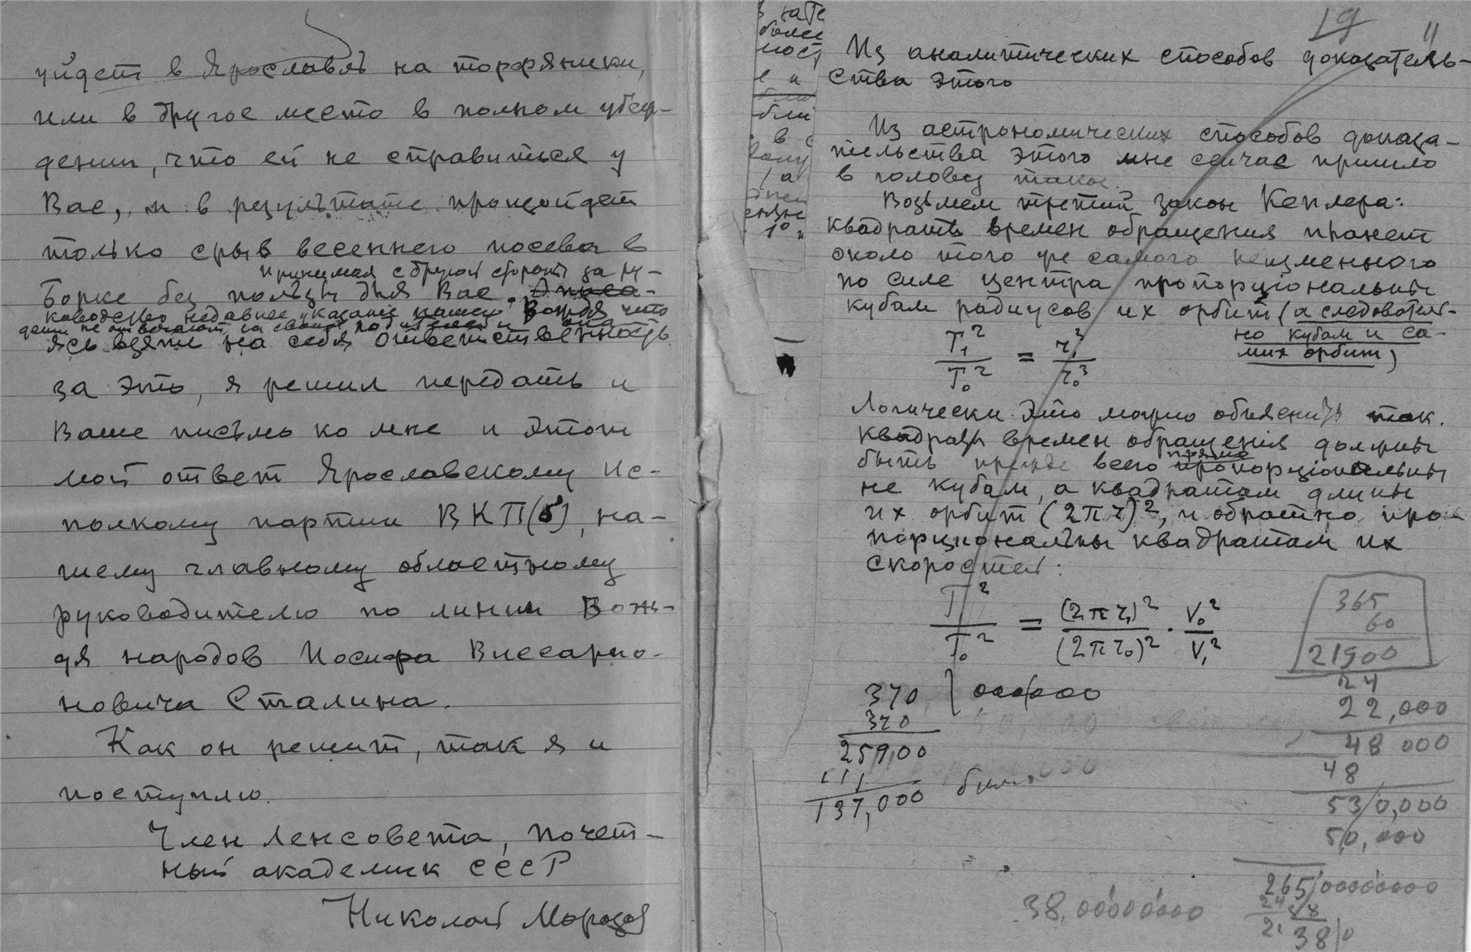 уйдет в Ярославль на торфяники,
или в другое место в полном убеж-
дении, что ей не справиться у
Вас, и в результате произойдет
только срыв весеннего посева в
принимая с другой стороны за ру-
Борке без пользы для Вас.
ководство недавнее указание нашего Вождя что
дети не отвечают за своих родителей и
ясь взять на себя ответственность
за это, я решил передать и
Ваше письмо ко мне и этот
мой ответ Ярославскому ис-
полкому партии ВКП(б), на-
шему главному областному
руководителю по линии Вож-
дя народов Иосифа Виссарио-
новича Сталина.
Как он решит, так я и
поступлю.
Член Ленсовета, почет-
ный академик СССР
Николай Морозов
19
11
Из аналитических способов доказатель-
ства этого
Из астрономических способов доказа-
тельства этого мне сейчас пришло
в голову такое.
Возьмем третий закон Кеплера:
квадраты времен обращения планет
около того же самого неизменного
по силе центра пропорціональны
кубам радиусов их орбит (а следователь-
но кубам и са-
мих орбит)
T₁²/T₀² = r₁³/r₀³
Логически это можно объяснить так.
Квадраты времен обращения должны
быть прежде всего прямо пропорціональны
не кубам, а квадратам длины
их орбит (2πr)², и обратно про-
порциональны квадратам их
скоростей:
T²/T₀² = (2πr₁)²/(2πr₀)² · V₀²/V₁²
365
60
21900
24
22,000
48 000
48
530,000
50,000
370
370
25900
111
137,000
265,00000000
38,00000000